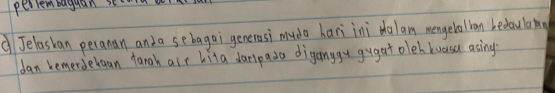 c) Jelaskan peranan anda sebagai generasi muda hari ini dalam mengekalkan kedaulatan
dan kemerdekaan tanah air kita daripada diganggu gugat oleh kuasa asing.